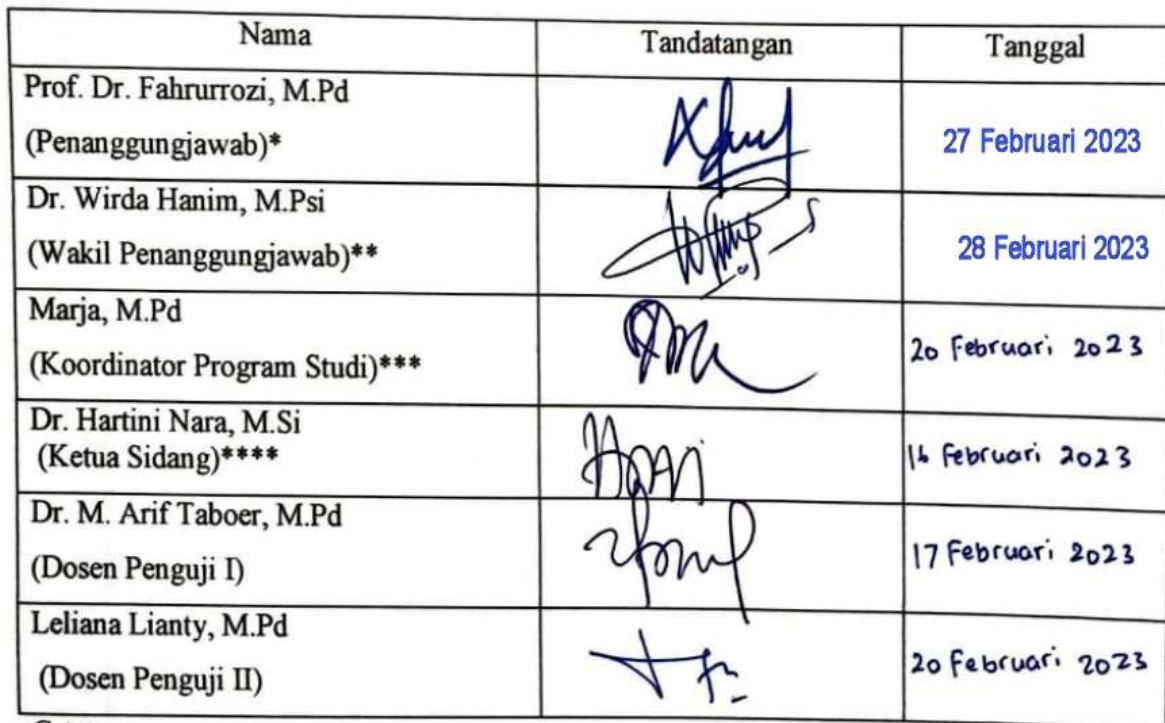 Nama Tandatangan Tanggal
Prof. Dr. Fahrurrozi, M.Pd
(Penanggungjawab)* 27 Februari 2023
Dr. Wirda Hanim, M.Psi
(Wakil Penanggungjawab)** 28 Februari 2023
Marja, M.Pd
(Koordinator Program Studi)*** 20 Februari 2023
Dr. Hartini Nara, M.Si
(Ketua Sidang)**** 16 Februari 2023
Dr. M. Arif Taboer, M.Pd
(Dosen Penguji I) 17 Februari 2023
Leliana Lianty, M.Pd
(Dosen Penguji II) 20 Februari 2023